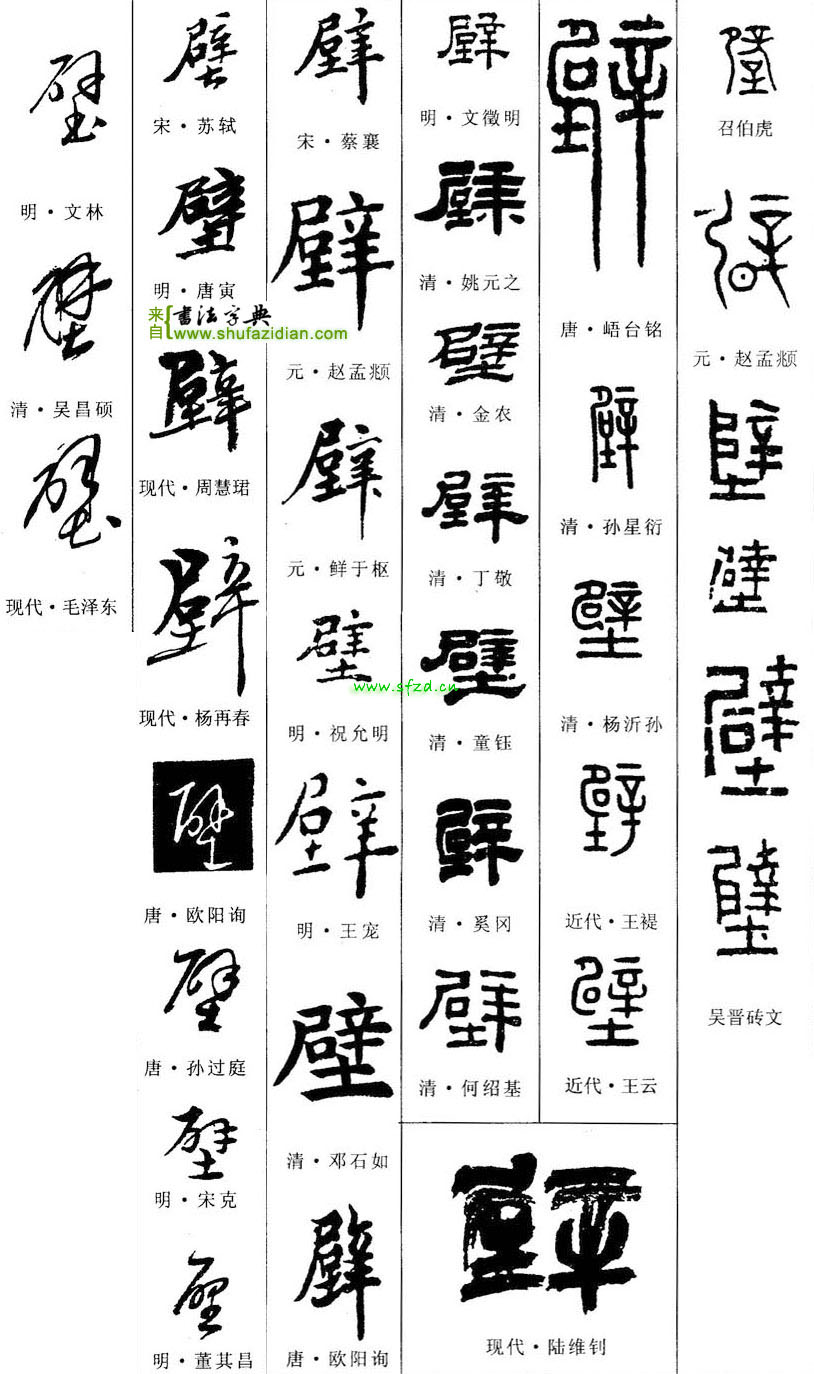 壁
明·文林
壁
清·吴昌硕
壁
现代·毛泽东
壁
宋·苏轼
壁
明·唐寅
来自{书法字典
www.shufazidian.com
壁
现代·周慧珺
壁
现代·杨再春
壁
唐·欧阳询
壁
唐·孙过庭
壁
明·宋克
壁
明·董其昌
壁
宋·蔡襄
壁
元·赵孟頫
壁
元·鲜于枢
壁
明·祝允明
www.sfzd.cn
壁
明·王宠
壁
清·邓石如
壁
唐·欧阳询
壁
明·文徵明
壁
清·姚元之
壁
清·金农
壁
清·丁敬
壁
清·童钰
壁
清·奚冈
壁
清·何绍基
壁
唐·峿台铭
壁
清·孙星衍
壁
清·杨沂孙
壁
近代·王褆
壁
近代·王云
壁
现代·陆维钊
壁
召伯虎
壁
元·赵孟頫
壁
壁
壁
壁
吴晋砖文